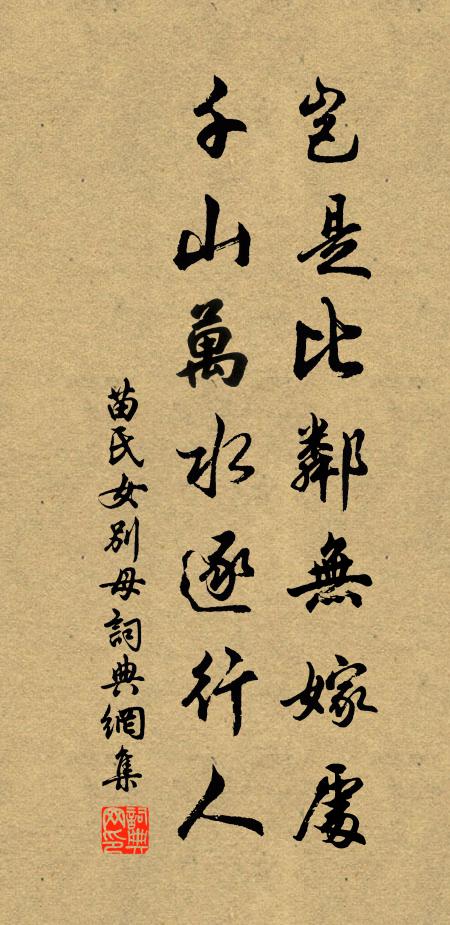 豈是比鄰無嫁處
千山萬水逐行人
苗氏女別母詞典網集
詞典
网印